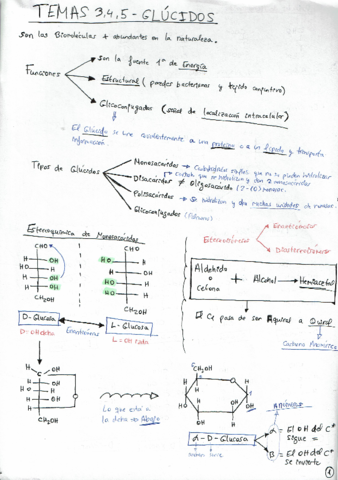 TEMAS 3,4,5 - GLÚCIDOS
Son las Biomoléculas + abundantes en la naturaleza.
Funciones
Son la fuente 1ª de Energía
Estructural (paredes bacterianas y tejido conjuntivo)
Glicoconjugados (señal de localización intracelular)
El Glúcido se une covalentemente a una proteína o a un lípido y transporta
información.
Tipos de Glúcidos
Monosacáridos → Carbohidratos simples que no se pueden hidrolizar
Disacáridos ≠ Oligosacárido (2-10) monos.
Polisacáridos → Se hidrolizan y dan muchas unidades de monos.
Glicoconjugados
Estereoquímica de Monosacáridos
Estereoisómeros
Enantiómeros
Diastereoisómeros
CHO
H OH
HO H
H OH
H OH
CH₂OH
CHO
HO H
H OH
HO H
HO H
CH₂OH
D-Glucosa
L-Glucosa
D-OH dcha
Enantiómeros
L-OH izda
Aldehído
o
Cetona
+ Alcohol → Hemiacetal
El C pasa de ser Aquiral a Quiral
Carbono Anomérico
H C OH
H OH
HO H
H OH
H
CH₂OH
O
Lo que está a
la dcha → Abajo
CH₂OH
O
H
OH
HO
OH
α-D-Glucosa
ANÓMERO
α = El OH del C*
sigue =
β = El OH del C*
se invierte
1